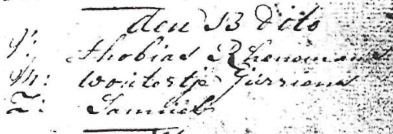 den 13 dito
V: thobias Rhenomanus
M: woutertje Jurriens
T: Samuel